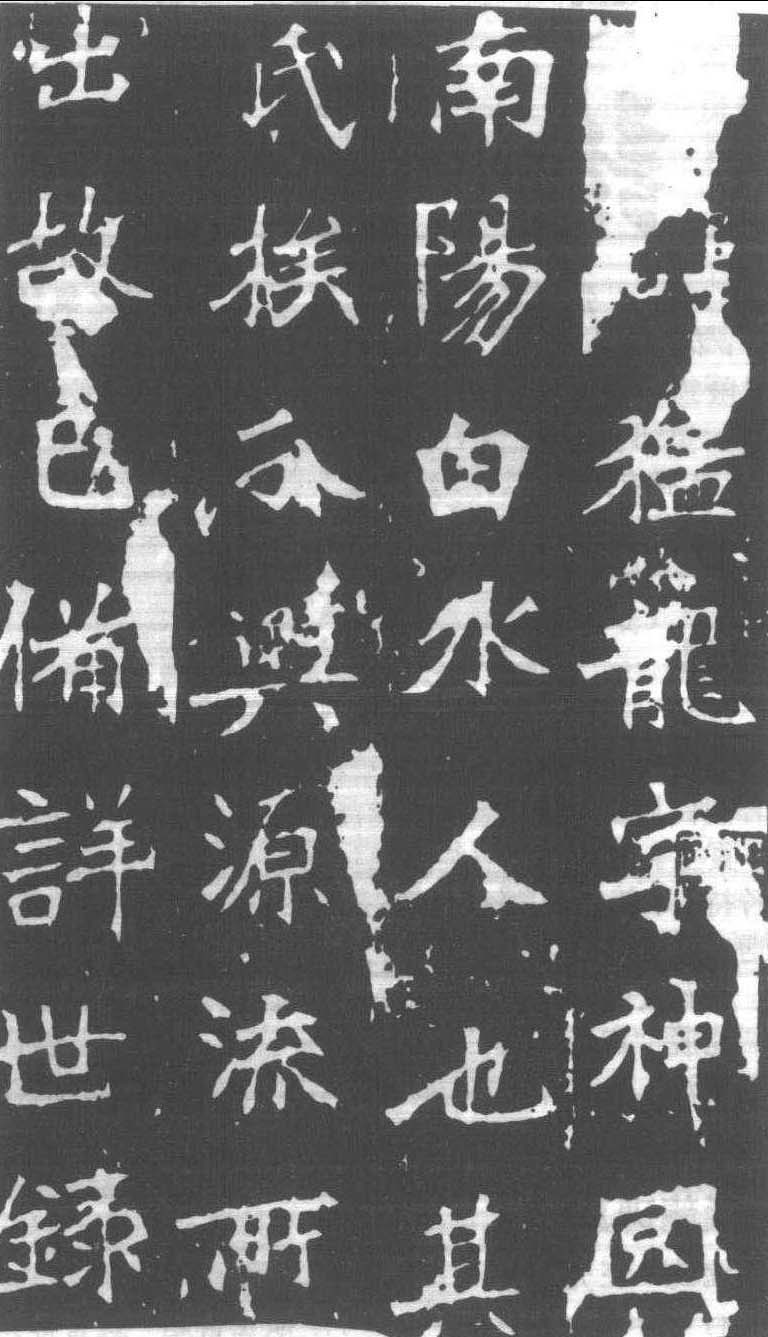 猛龍字神囧
南陽白水人也其
氏族分興源流所
出故已備詳世錄